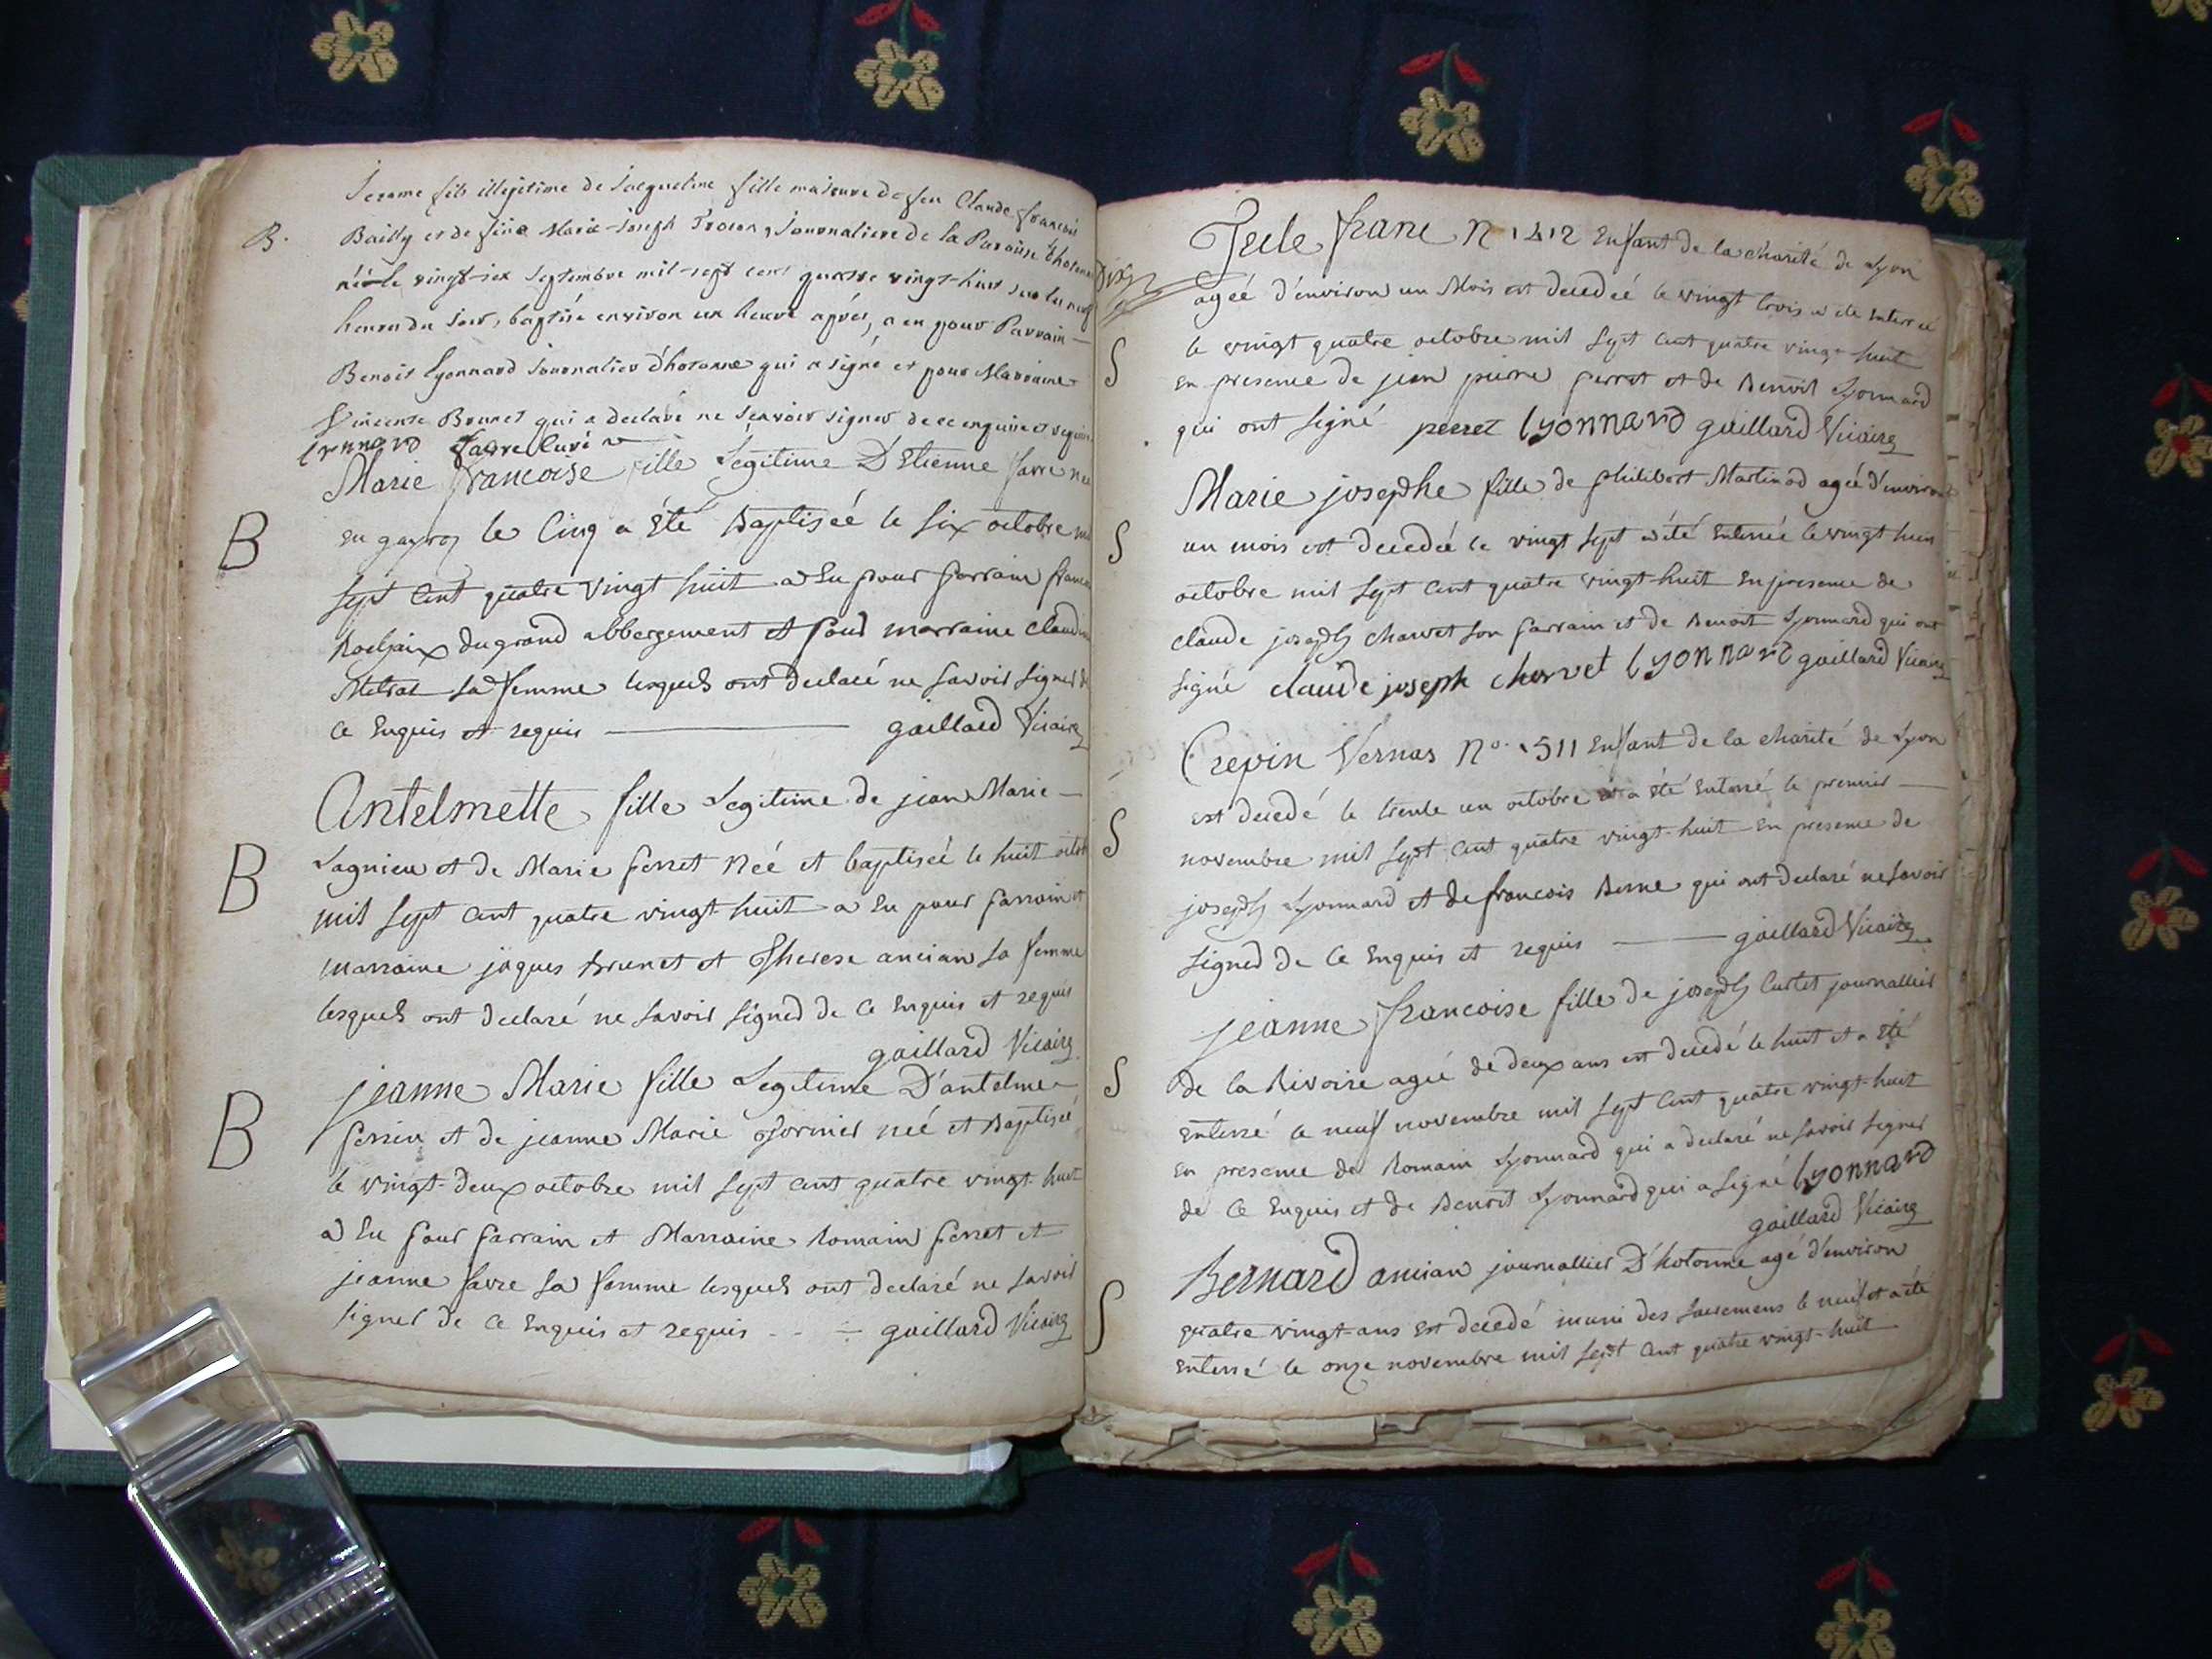 B.
Jerome fils illegitime de Jacqueline fille majeure de feu Claude françois
Bailly et de fûe Marie-Joseph journaliere de la Paroisse
née le vingt-six Septembre mil-sept cent quatre vingt-huit sur les neuf
heures du soir, baptisé environ un heure après, a eu pour Parrain
Benoit Lyonnard journalier d'hotonne qui a signé et pour Marraine
Vincente Brunet qui a declaré ne sçavoir signer de ce enquise et requise
Lyonnard favre Curé
B
Marie francoise fille Legitime D'Etienne favre née
en le Cinq a Eté Baptiseé le six octobre mil
sept cent quatre vingt huit a Eu pour parrain
du grand abbergement et pour marraine
sa femme lesquels ont declaré ne savoir signer de
Ce Enquis et requis gaillard Vicaire
B
Antelmette fille Legitime de jean Marie
Lagnieu et de Marie perret Neé et baptiseé le huit
mil sept cent quatre vingt-huit a Eu pour parrain et
marraine jaques brunet et Therese ancian sa femme
lesquels ont declaré ne savoir signer de Ce Enquis et requis
gaillard Vicaire
B
jeanne Marie fille Legitime D'antelme
et de jeanne Marie neé et Baptiseé
le vingt-deux octobre mil sept cent quatre vingt-huit
a Eu pour parrain et Marraine Romain perret et
jeanne favre sa femme lesquels ont declaré ne savoir
signer de Ce Enquis et requis gaillard Vicaire
franc N 1412 Enfant de la charité de Lyon
ageé d'environ un Mois est decedeé le vingt trois a ete Enterreé
S
le vingt quatre octobre mil sept cent quatre vingt-huit
En presence de jean pierre perret et de Benoit Lyonnard
qui ont signé perret Lyonnard gaillard Vicaire
Marie josephe fille de philibert Martinod ageé d'environ
S
un mois est decedeé le vingt sept a été Enterreé le vingt huit
octobre mil sept cent quatre vingt-huit En presence de
claude joseph charvet son parrain et de Benoit Lyonnard qui ont
signé claude joseph charvet Lyonnard gaillard Vicaire
Crepin Vernas No. 1511 Enfant de la charité de Lyon
est decedé le trente un octobre et a été Enterré le premier
S
novembre mil sept cent quatre vingt-huit En presence de
joseph Lyonnard et de francois Berne qui ont declaré ne savoir
signer de Ce Enquis et requis gaillard Vicaire
jeanne francoise fille de joseph Curtet journallier
S
de la Rivoire ageé de deux ans est decedé le huit et a été
Enterré le neuf novembre mil sept cent quatre vingt-huit
En presence de Romain Lyonnard qui a declaré ne savoir signer
de Ce Enquis et de Benoit Lyonnard qui a signé Lyonnard
gaillard Vicaire
Bernard ancian journallier D'hotonne agé d'environ
S
quatre vingt-ans est decedé muni des sacremens le neuf et a été
Enterré le onze novembre mil sept cent quatre vingt-huit